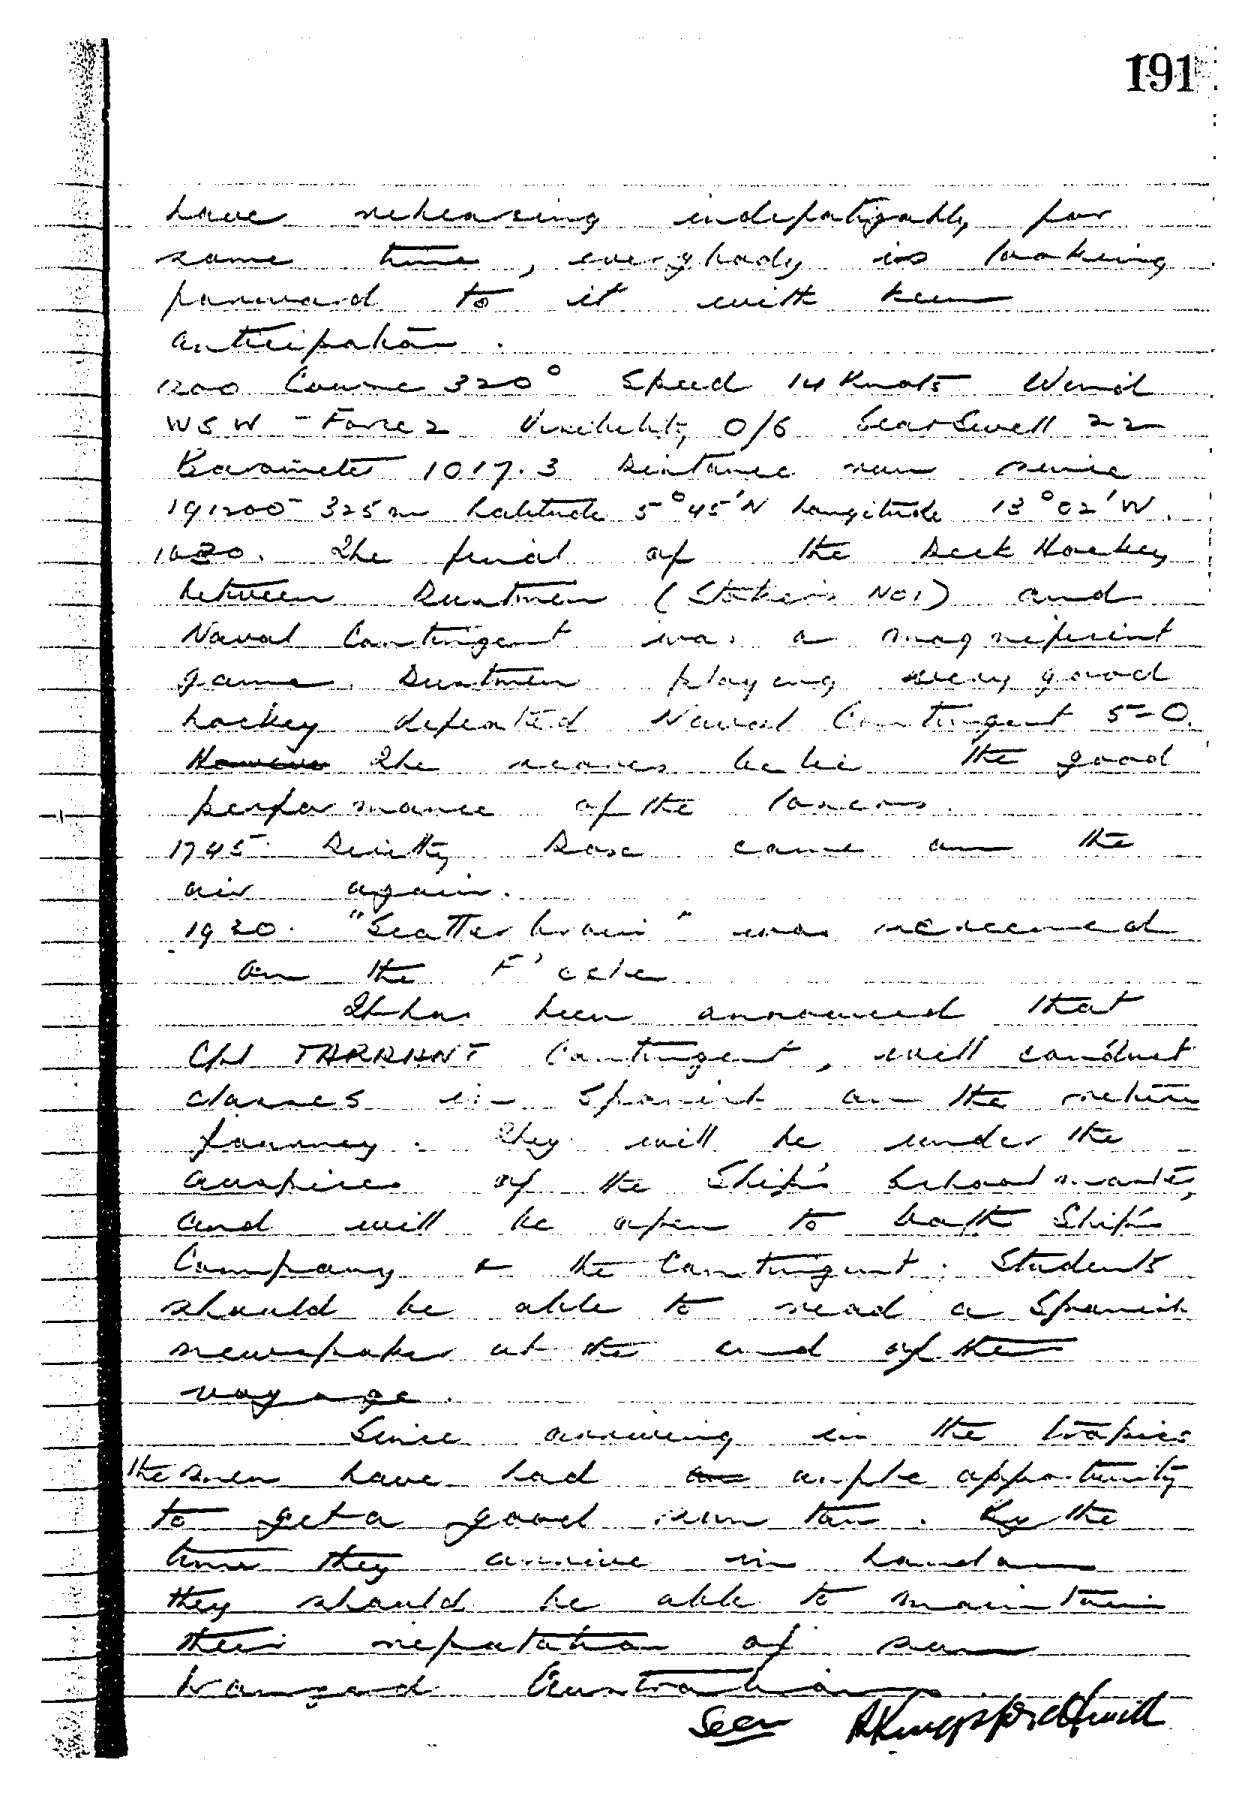 191
have rehearsing indefatigably for
some time, everybody is looking
forward to it with keen
anticipation.
1200 Course 320° Speed 14 Knots Wind
WSW - Force 2 Visibility 0/6 Sea & Swell 22
Barometer 1017.3 Distance run since
191200 - 325m Latitude 5°45'N Longitude 13°02'W.
1630. The final of the Deck Hockey
between Dustmen (Stokers No1) and
Naval Contingent was a magnificent
game. Dustmen playing very good
hockey defeated Naval Contingent 5-0.
However The scores belie the good
performance of the losers.
1745 Ditty Box came on the
air again.
1920. "Scatterbrain" was screened
on the F'ocle
It has been announced that
Cpl TARRANT Contingent, will conduct
classes in Spanish on the return
journey. They will be under the
auspices of the Ship's Schoolmaster,
and will be open to both Ship's
Company & the Contingent. Students
should be able to read a Spanish
newspaper at the end of the
voyage.
Since arriving in the tropics
the men have had an ample opportunity
to get a good sun tan. By the
time they arrive in London
they should be able to maintain
their reputation of sun
bronzed Australians.
Seen R Kingsford Smith